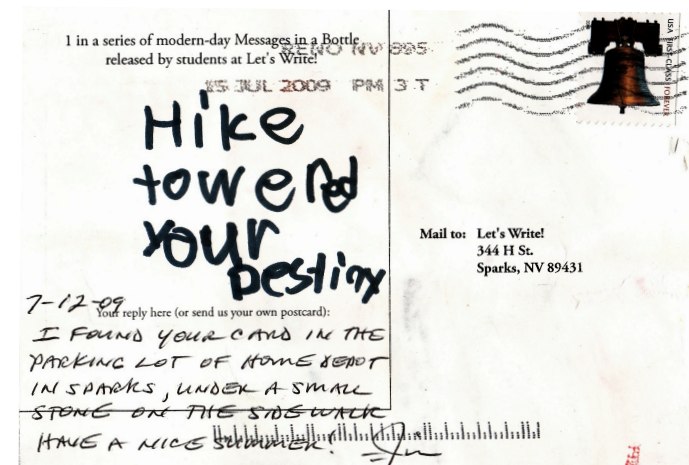 1 in a series of modern-day Messages in a Bottle
released by students at Let's Write!
RENO NV 895
15 JUL 2009 PM 3 T
USA FIRST-CLASS FOREVER
Hike
towered
your
Destiny
Mail to: Let's Write!
344 H St.
Sparks, NV 89431
7-12-09
Your reply here (or send us your own postcard):
I FOUND YOUR CARD IN THE
PARKING LOT OF HOME DEPOT
IN SPARKS, UNDER A SMALL
STONE ON THE SIDEWALK
HAVE A NICE SUMMER! Jim